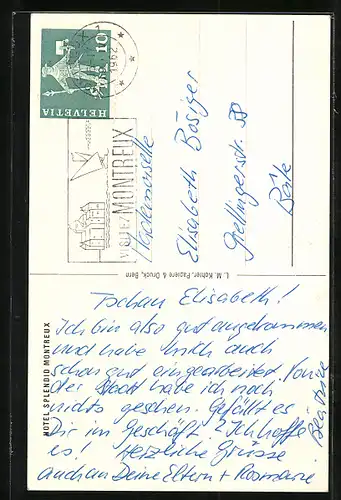 HELVETIA
10
1962
VISITEZ MONTREUX
Mademoiselle
Elisabeth Bösiger
58
L. M. Kohler, Papiere & Druck, Bern
HOTEL SPLENDID MONTREUX
Tschau Elisabeth!
Ich bin also gut angekommen
und habe mich auch
schon gut eingearbeitet. Von
der Stadt habe ich noch
nichts gesehen. Gefällt es
Dir im Geschäft? Ich hoffe
es! Herzliche Grüsse
auch an Deine Eltern + Rosmarie
Béatrice